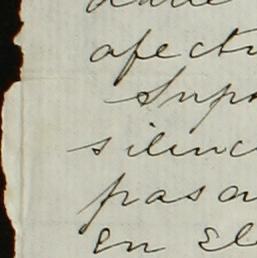 afectu
Supo
silenc
pasa
en el